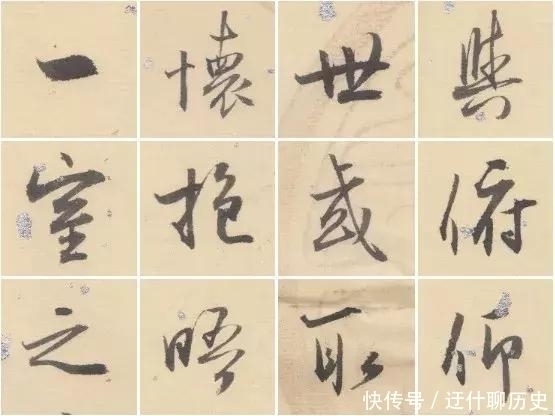 與俯仰
世或取
懷抱晤
一室之
快传号/迂什聊历史